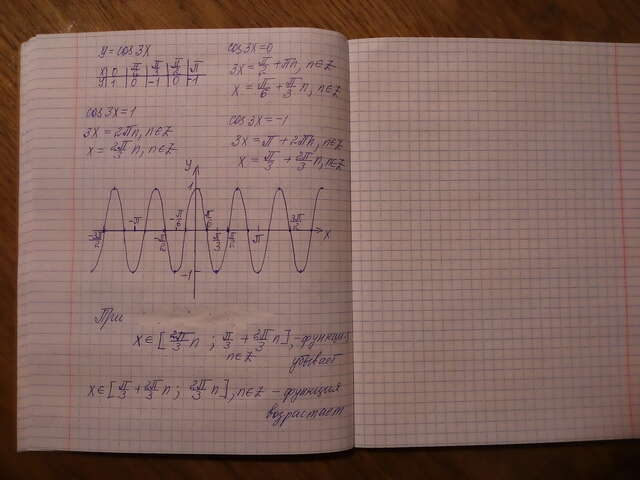 y = cos 3x
x | 0 | π/6 | π/3 | π/2 | π
y | 1 | 0 | -1 | 0 | -1
cos 3x = 1
3x = 2πn, n∈Z
x = 2π/3 n, n∈Z
cos 3x = 0
3x = π/2 + πn, n∈Z
x = π/6 + π/3 n, n∈Z
cos 3x = -1
3x = π + 2πn, n∈Z
x = π/3 + 2π/3 n, n∈Z
y
1
-π
π/3
π
3π/2
x
-1
При
x∈[2π/3 n ; π/3 + 2π/3 n], - функция
n∈Z
убывает
x∈[π/3 + 2π/3 n ; 2π/3 n], n∈Z - функция
возрастает